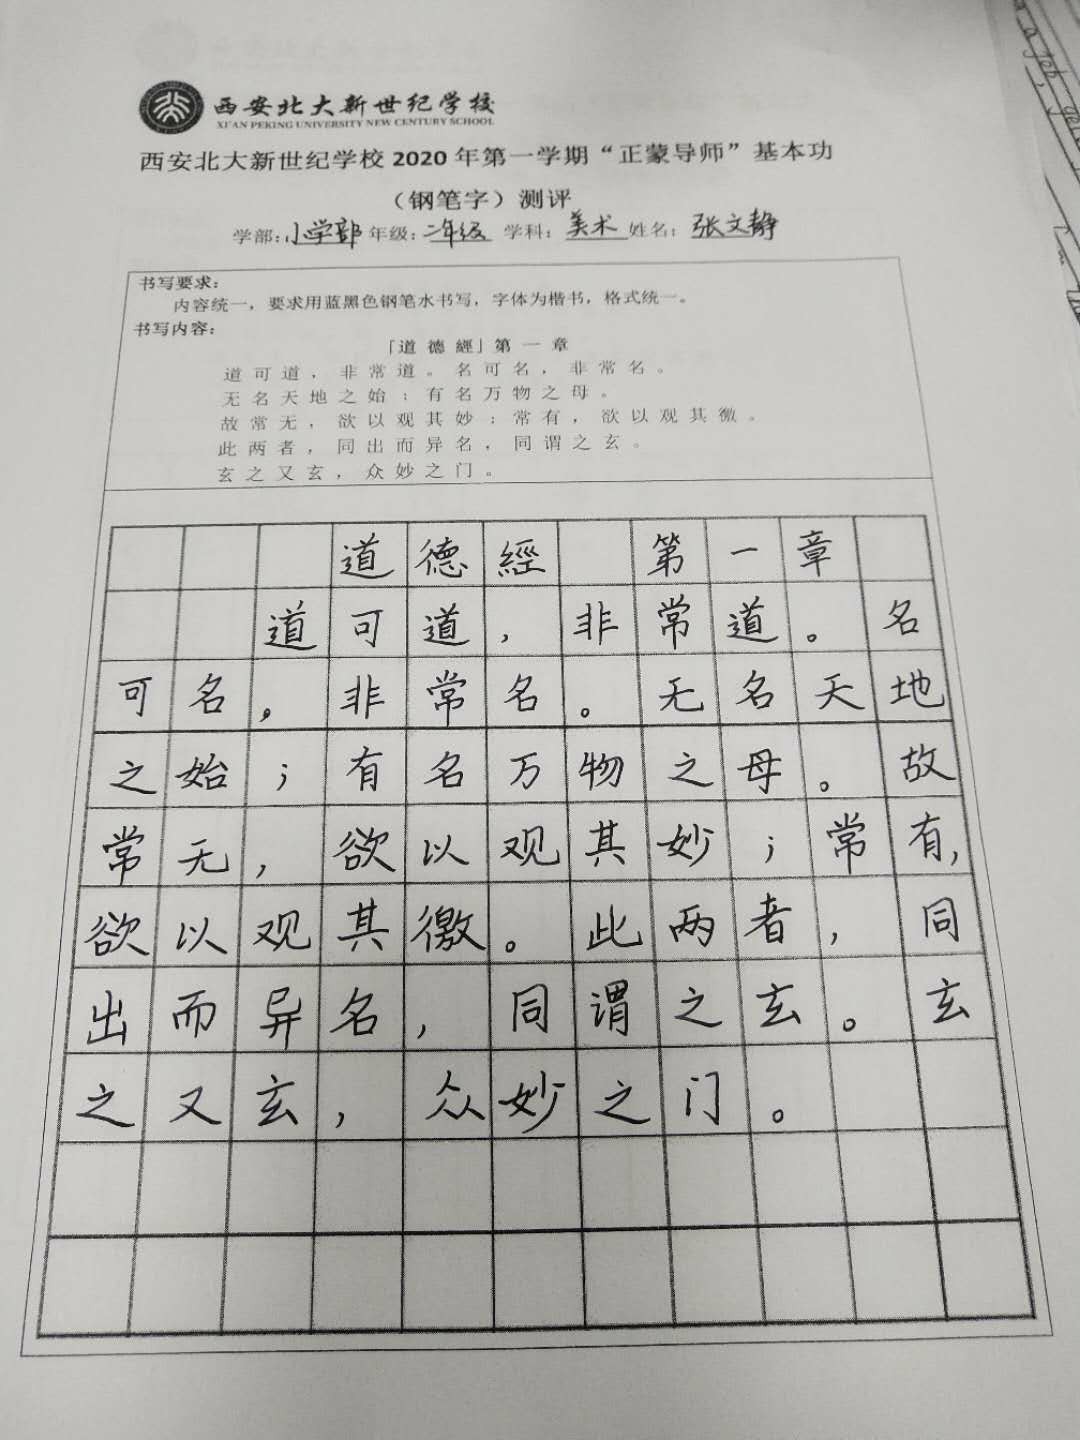 西安北大新世纪学校
XI'AN PEKING UNIVERSITY NEW CENTURY SCHOOL
西安北大新世纪学校 2020 年第一学期“正蒙导师”基本功
（钢笔字）测评
学部:小学部 年级:二年级 学科:美术 姓名:张文静
书写要求:
内容统一，要求用蓝黑色钢笔水书写，字体为楷书，格式统一。
书写内容:
「道德經」第一章
道可道，非常道。名可名，非常名。
无名天地之始；有名万物之母。
故常无，欲以观其妙；常有，欲以观其微。
此两者，同出而异名，同谓之玄。
玄之又玄，众妙之门。
道德經 第一章
道可道，非常道。名
可名，非常名。无名天地
之始；有名万物之母。故
常无，欲以观其妙；常有，
欲以观其徼。此两者，同
出而异名，同谓之玄。玄
之又玄，众妙之门。
a job, get